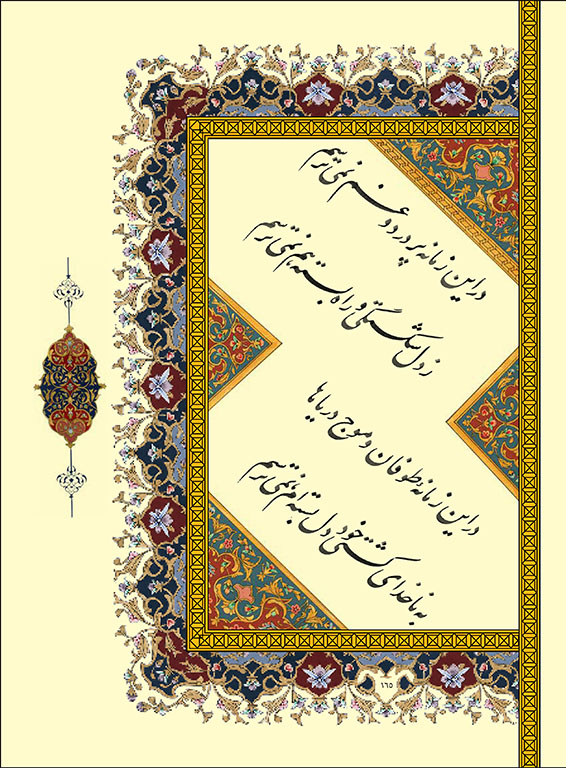 در این زمانه پر درد و غم نمی ترسم
ز دل شکستگی و راه بسته هم نمی ترسم
در این زمانه طوفان و موج دریاها
به ناخدای کشتی خود دل بسته ام نمی ترسم
۱۶۵